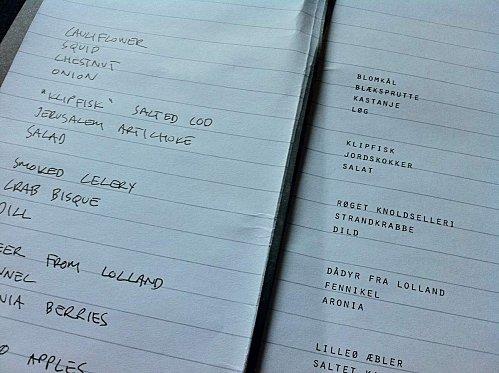 CAULIFLOWER
SQUID
CHESTNUT
ONION
"KLIPFISK" SALTED COD
JERUSALEM ARTICHOKE
SALAD
SMOKED CELERY
CRAB BISQUE
DILL
FROM LOLLAND
BERRIES
APPLES
BLOMKÅL
BLÆKSPRUTTE
KASTANJE
LØG
KLIPFISK
JORDSKOKKER
SALAT
RØGET KNOLDSELLERI
STRANDKRABBE
DILD
DÅDYR FRA LOLLAND
FENNIKEL
ARONIA
LILLEØ ÆBLER
SALTET